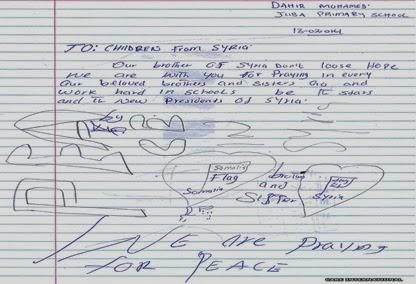 DAHIR MOHAMED
JUBA PRIMARY SCHOOL
12-02-2014
TO: CHILDREN FROM SYRIA
Our brother OF SYRIA Don't loose HOPE
We are with you for Praying in every
Our beloved brothers and Sisters Go and
work hard in schools be IT stars
and the New Presidents OF SYRIA.
Somalia
Flag
Somalia
brother
and
SISTER
Flag
Syria
WE are Praying
FOR PEACE
CARE INTERNATIONAL